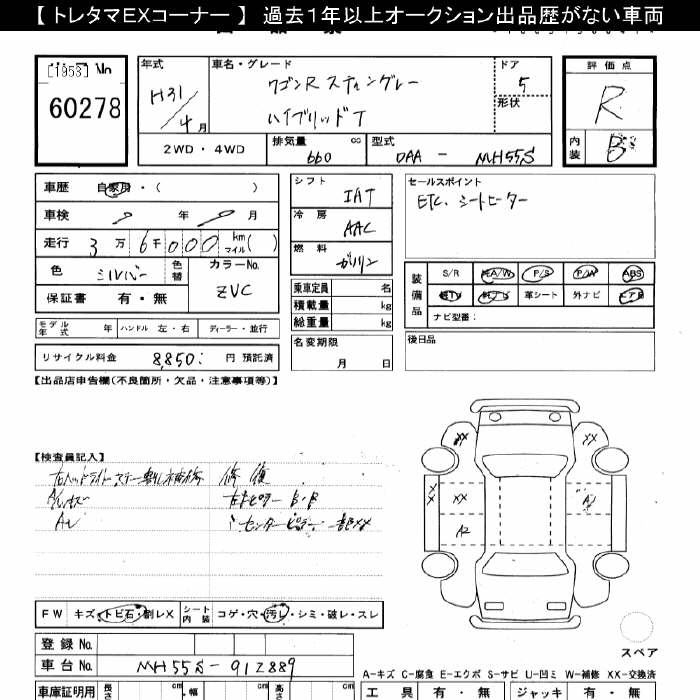 【 トレタマＥＸコーナー 】 過去１年以上オークション出品歴がない車両
[1953] No
60278
年式
H31/4月
車名・グレード
ワゴンR スティングレー
ハイブリッドT
ドア
5
形状
評価点
R
内装
B
2WD・4WD
排気量
660 cc
型式
DAA - MH55S
車歴
自家用・( )
車検
年 月
走行
3万6千000 km マイル( )
色
シルバー
色替
カラーNo.
ZVC
保証書
有・無
モデル年式
年
ハンドル 左・右
ディーラー・並行
リサイクル料金
8,850: 円 預託済
シフト
IAT
冷房
AAC
燃料
ガソリン
乗車定員 名
積載量 kg
総重量 kg
名変期限
月 日
セールスポイント
ETC、シートヒーター
装備品
S/R
AW
P/S
P/W
ABS
革シート
外ナビ
ナビ型番：
後日品
【出品店申告欄(不良箇所・欠品・注意事項等)】
【検査員記入】
修復
センターピラー
FW
キズ・トビ石・割レX
シート内装
コゲ・穴・汚レ・シミ・破レ・スレ
XX
XX
X
X
XX
A2
スペア
登録 No.
車台 No.
MH55S-912889
A-キズ C-腐食 E-エクボ S-サビ U-凹ミ W-補修 XX-交換済
車庫証明用
長さ cm
幅 cm
高さ cm
工具 有・無
ジャッキ 有・無